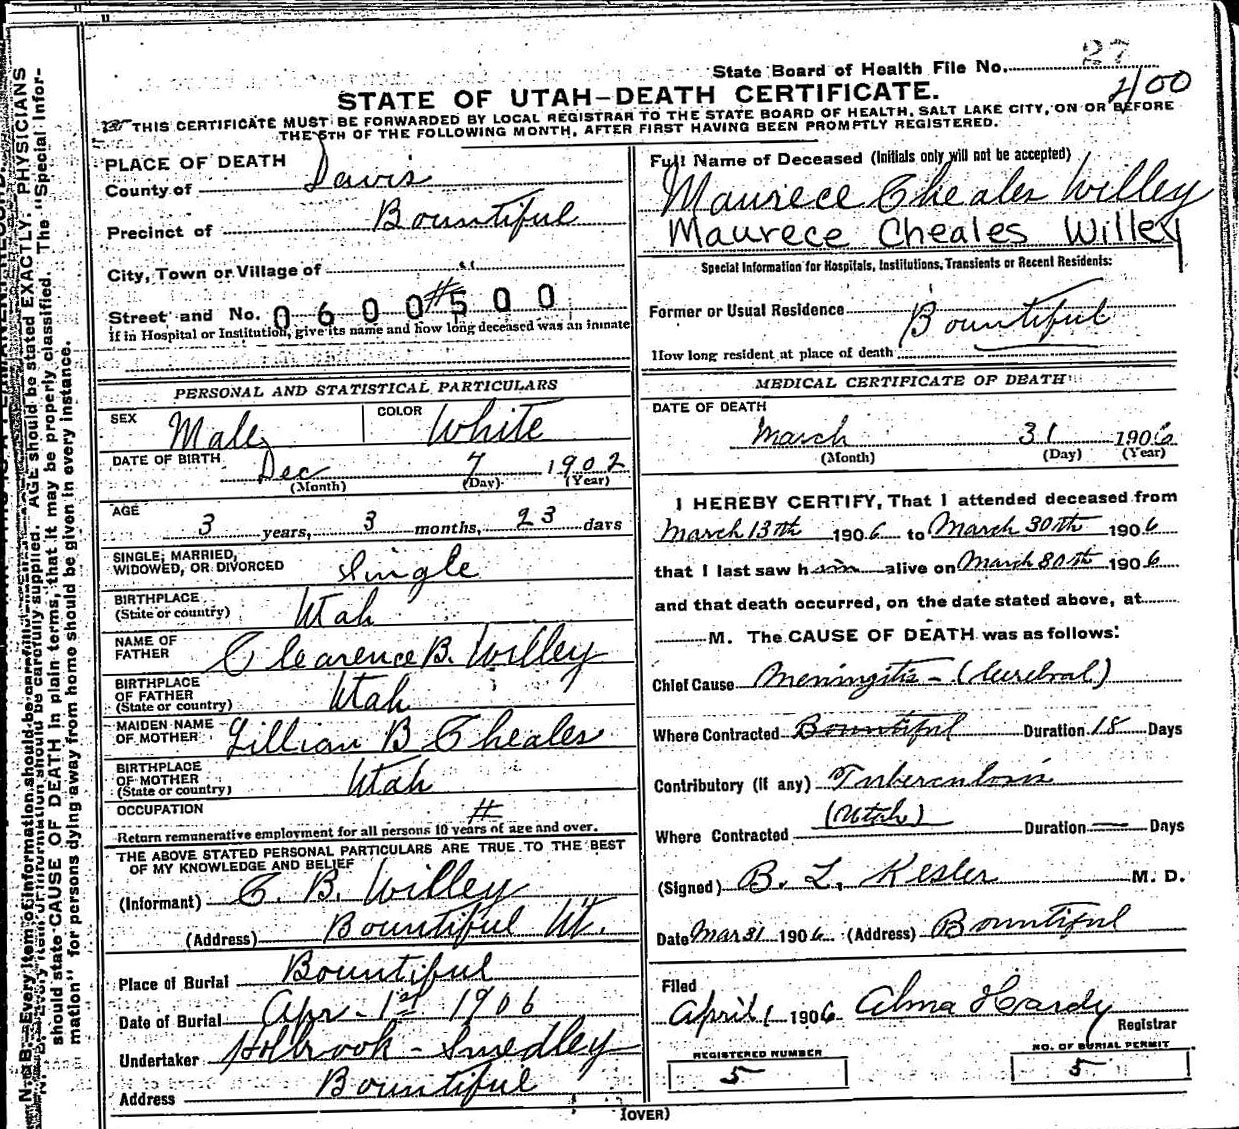 State Board of Health File No. 27
400
STATE OF UTAH—DEATH CERTIFICATE.
THIS CERTIFICATE MUST BE FORWARDED BY LOCAL REGISTRAR TO THE STATE BOARD OF HEALTH, SALT LAKE CITY, ON OR BEFORE
THE 5TH OF THE FOLLOWING MONTH, AFTER FIRST HAVING BEEN PROMPTLY REGISTERED.
PLACE OF DEATH
County of Davis
Precinct of Bountiful
City, Town or Village of "
Street and No. 0 6 0 0 # 5 0 0
If in Hospital or Institution, give its name and how long deceased was an inmate
PERSONAL AND STATISTICAL PARTICULARS
SEX Male COLOR White
DATE OF BIRTH Dec 7 1902
(Month) (Day) (Year)
AGE
3 years, 3 months, 23 days
SINGLE, MARRIED,
WIDOWED, OR DIVORCED Single
BIRTHPLACE
(State or country) Utah
NAME OF
FATHER Clearence B. Willey
BIRTHPLACE
OF FATHER
(State or country) Utah
MAIDEN NAME
OF MOTHER Lillian B Cheales
BIRTHPLACE
OF MOTHER
(State or country) Utah
OCCUPATION #
Return remunerative employment for all persons 10 years of age and over.
THE ABOVE STATED PERSONAL PARTICULARS ARE TRUE TO THE BEST
OF MY KNOWLEDGE AND BELIEF
(Informant) C. B. Willey
(Address) Bountiful Ut.
Place of Burial Bountiful
Date of Burial Apr - 1st 1906
Undertaker Holbrook - Smedley
Address Bountiful
Full Name of Deceased (Initials only will not be accepted)
Maurece Cheales Willey
Maurece Cheales Willey
Special Information for Hospitals, Institutions, Transients or Recent Residents:
Former or Usual Residence Bountiful
How long resident at place of death
MEDICAL CERTIFICATE OF DEATH
DATE OF DEATH
March 31 1906
(Month) (Day) (Year)
I HEREBY CERTIFY, That I attended deceased from
March 13th 1906 to March 30th 1906
that I last saw him alive on March 30th 1906
and that death occurred, on the date stated above, at
M. The CAUSE OF DEATH was as follows:
Chief Cause Meningitis - (Cerebral)
Where Contracted Bountiful Duration 18 Days
Contributory (if any) Tuberculosis
Where Contracted (Utah) Duration — Days
(Signed) B. L. Kesler M. D.
Date Mar 31 1906 (Address) Bountiful
Filed
April 1 1906 Alma Hardy
Registrar
REGISTERED NUMBER
5
NO. OF BURIAL PERMIT
5
(OVER)
N. B.—Every item of information should be carefully supplied. AGE should be stated EXACTLY. PHYSICIANS
should state CAUSE OF DEATH in plain terms, that it may be properly classified. The "Special Infor-
mation" for persons dying away from home should be given in every instance.